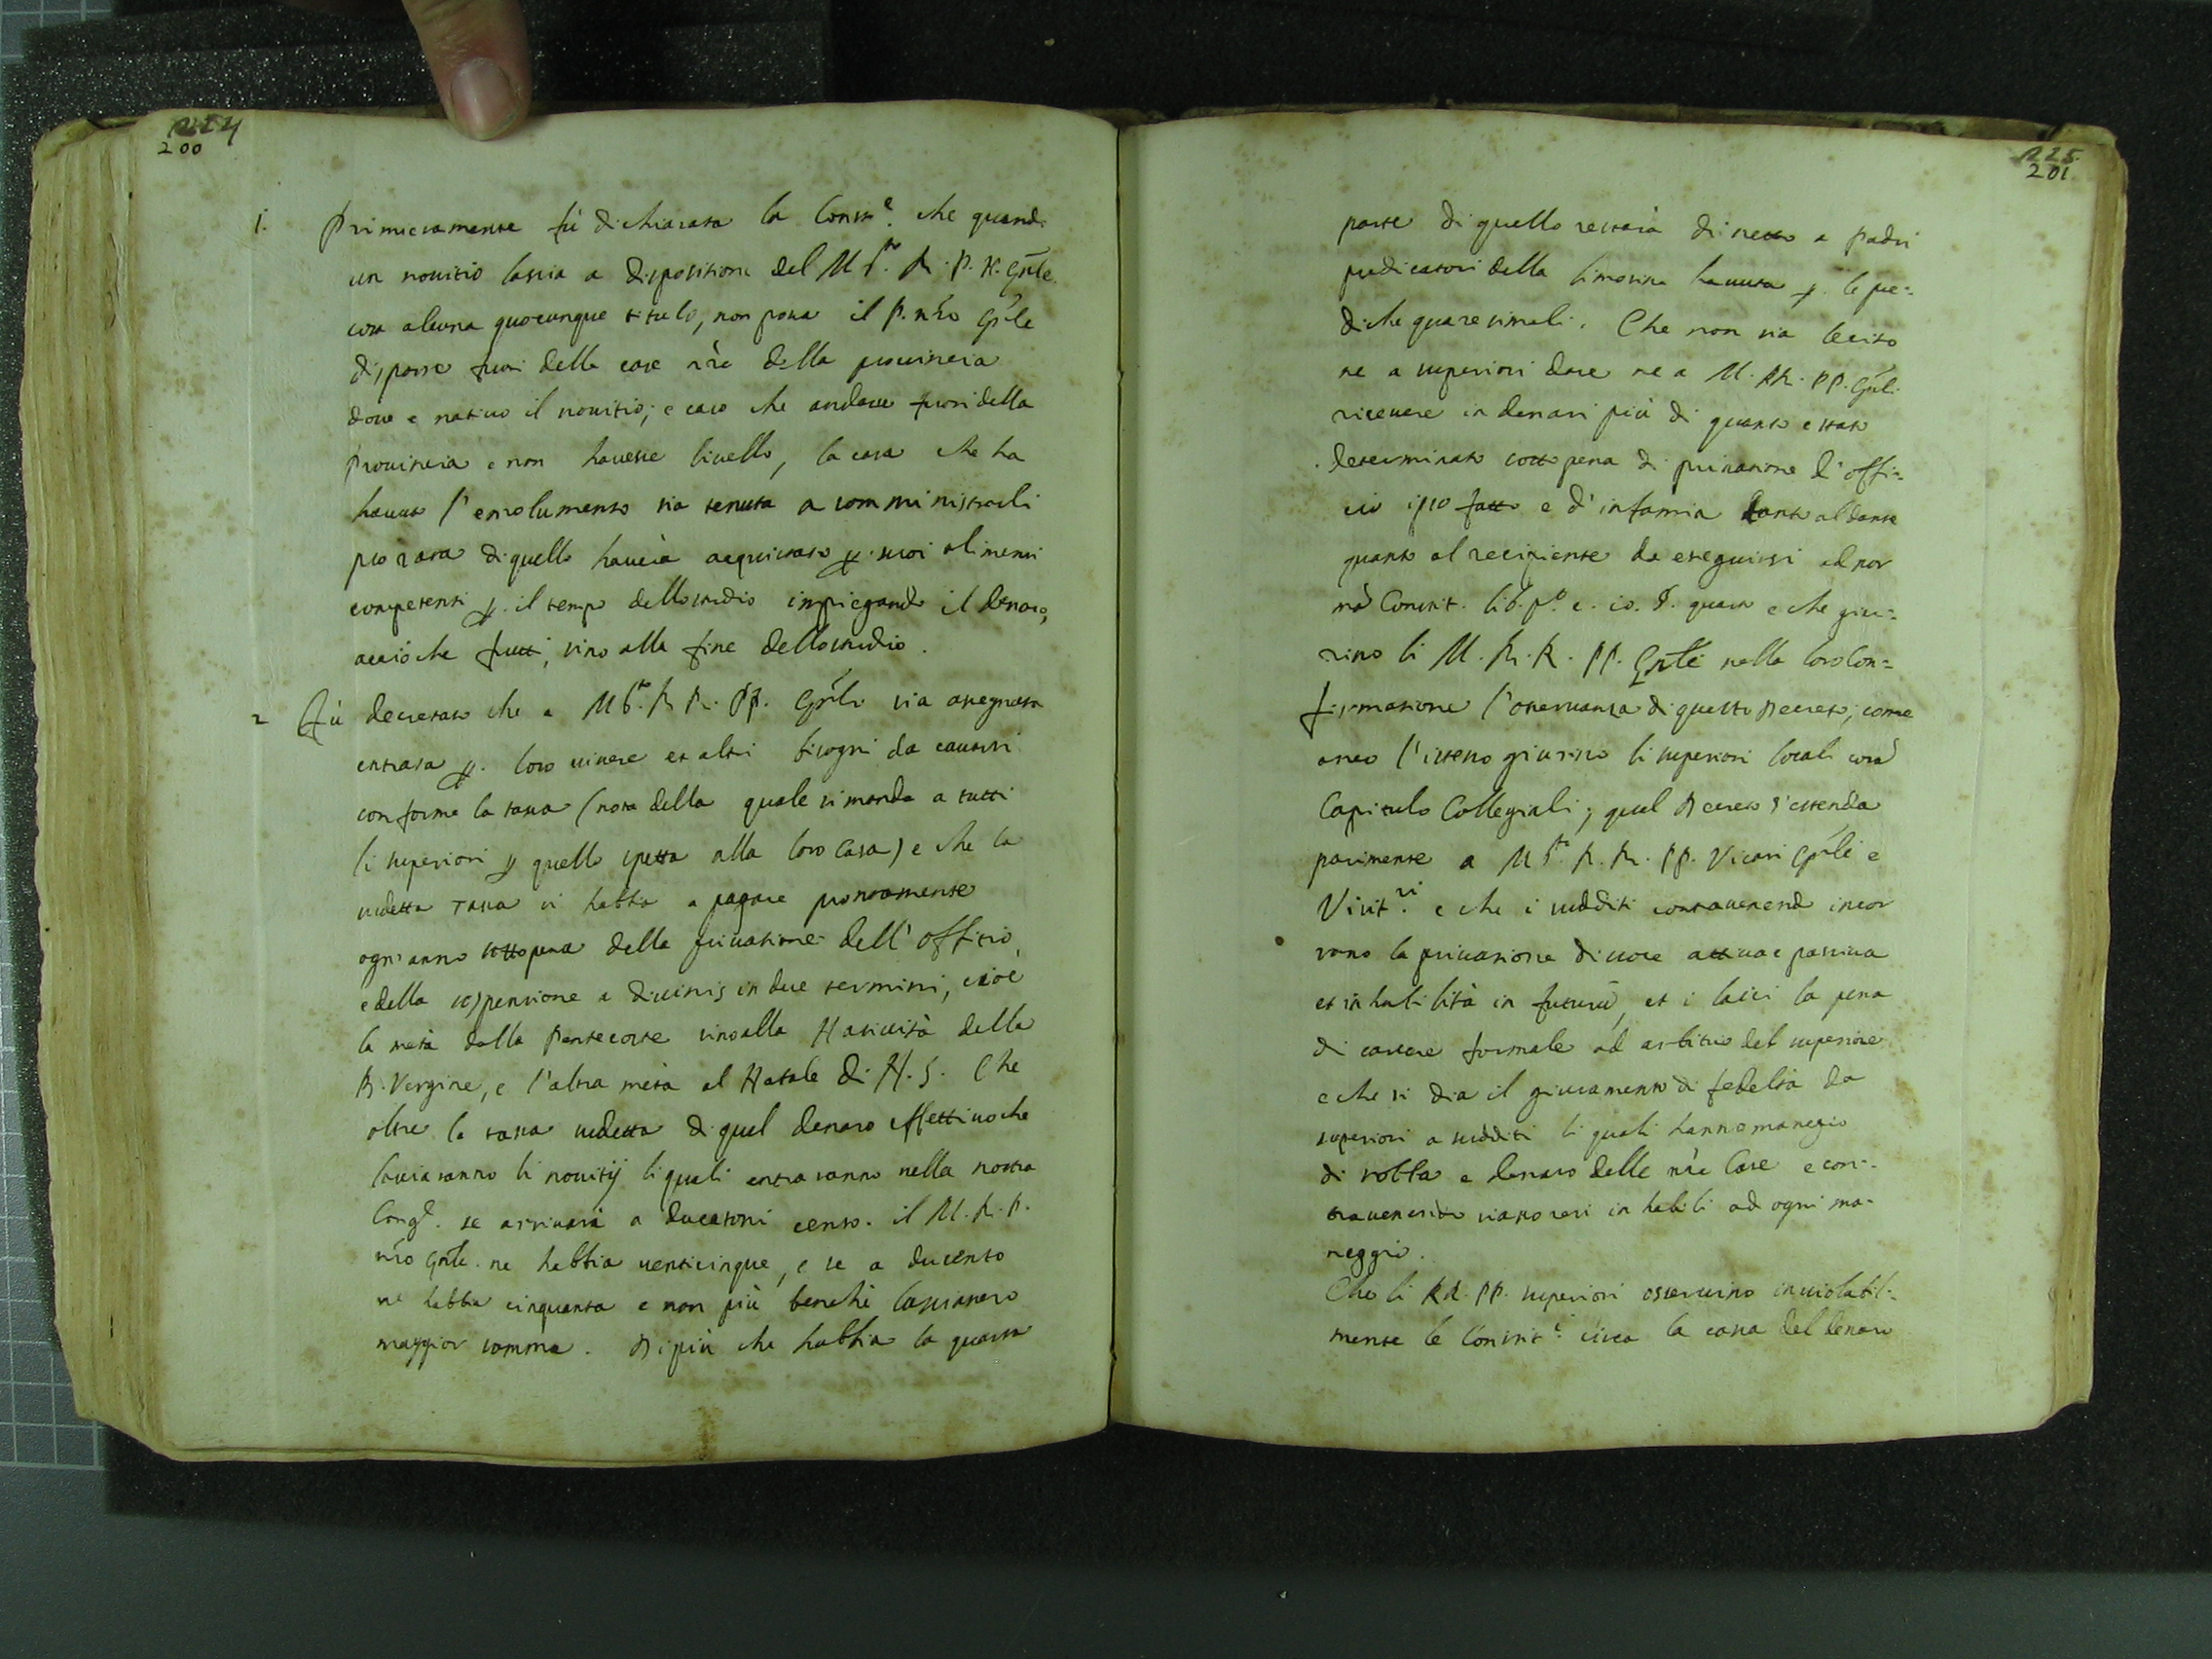 224
200
1. Primieramente fù dichiarata la Constne. che quando
un novitio lascia a dispositione del M.to R. P. N. Gñle
cosa alcuna quocunque titulo, non possa il P. nr̃o Gñle
disporre fuori delle case nr̃e della provincia
dove e nativo il novitio; e caso che andasse fuori della
Provincia e non havesse livello, la casa che ha
havuto l'emolumento sia tenuta a somministrarli
pro rata di quello haverà acquistato p. suoi alimenti
competenti p. il tempo dello studio impiegando il denaro,
acciò che frutti, sino alla fine dello studio.
2 Fù decretato che a M.to R R. PP. Gñli sia assegnata
entrata p. loro vivere et altri bisogni da cavarsi
conforme la tassa (nota della quale si manda a tutti
li superiori p quello spetta alla loro Casa) e che la
sudetta tassa si habbia a pagare prontamente
ogn'anno sotto pena della privatione dell'offitio,
e della suspensione a divinis in due termini, cioè
la metà dalla Pentecoste sino alla Natività della
B. Vergine, e l'altra metà al Natale di N. S. Che
oltre la tassa sudetta di quel denaro effettivo che
lasciaranno li novitij li quali entraranno nella nostra
Congne. se arrivarà a ducatoni cento. il M. R. P.
nr̃o Gñle. ne habbia venticinque, e se a ducento
ne habbia cinquanta e non più benchè lasciassero
maggior somma. Di più che habbia la quarta
225
201
parte di quello restarà di netto a Padri
predicatori della limosina havuta p. le pre-
diche quaresimali. Che non sia lecito
ne a superiori dare ne a M. RR. PP. Gñli
ricevere in denari più di quanto e stato
determinato sotto pena di privatione d'offi-
cio ipso fatto e d'infamia tanto al dante
quanto al recipiente da eseguirsi ad nor
mã Constit. lib. po. c. 10. §. quarto e che giu-
rino li M. R. R. PP. Gñli nella loro con-
firmatione l'osservanza di questo Decreto, come
anco l'istesso giurino li superiori locali corã
Capitulo Collegiali; qual Decreto s'estenda
parimente a M.to R. R. PP. Vicari Gñli e
Visit.ri e che i sudditi contravenendo incor
rano la privatione di voce attiva e passiva
et inhabilità in futurũ, et i laici la pena
di carcere formale ad arbitrio del superiore
e che si dia il giuramento di fedeltà da
superiori a sudditi li quali hanno manegio
di robba e denaro delle nr̃e Case e con-
travenendo siano resi inhabili ad ogni ma-
neggio.
Che li RR. PP. superiori osservino inviolabil-
mente le Constit.i circa la cassa del denaro